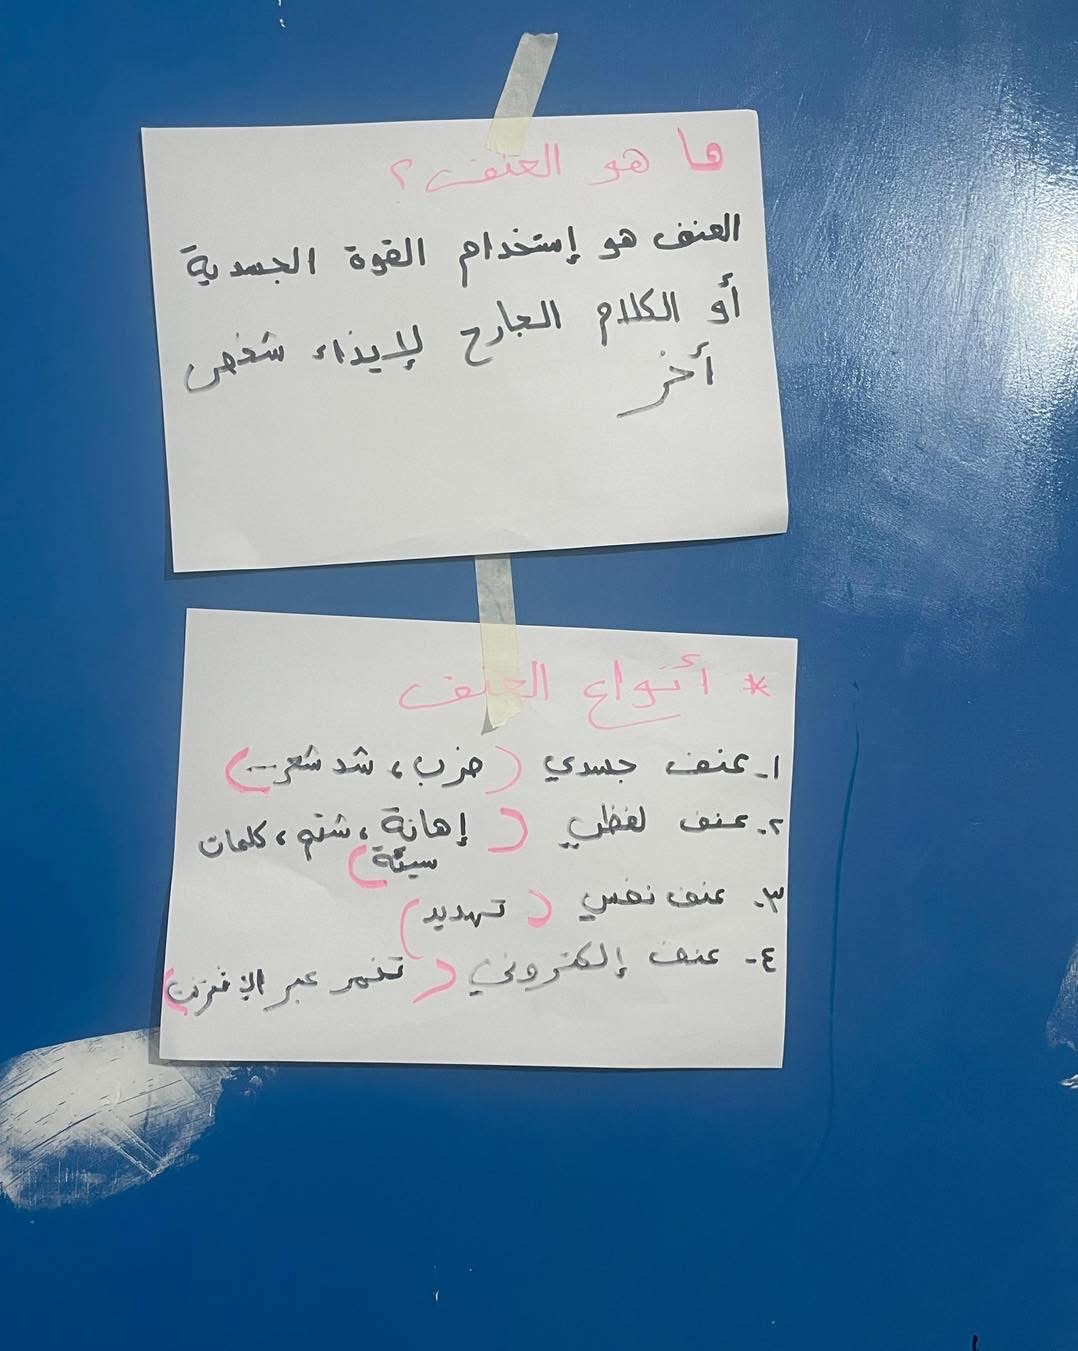 ما هو العنف؟
العنف هو إستخدام القوة الجسدية
أو الكلام الجارح لإيذاء شخص
أخر
* أنواع العنف
١- عنف جسدي (ضرب، شد شعر...)
٢- عنف لفظي (إهانة، شتم، كلمات
سيئة)
٣- عنف نفسي (تهديد)
٤- عنف إلكتروني (تنمر عبر الإنترنت)